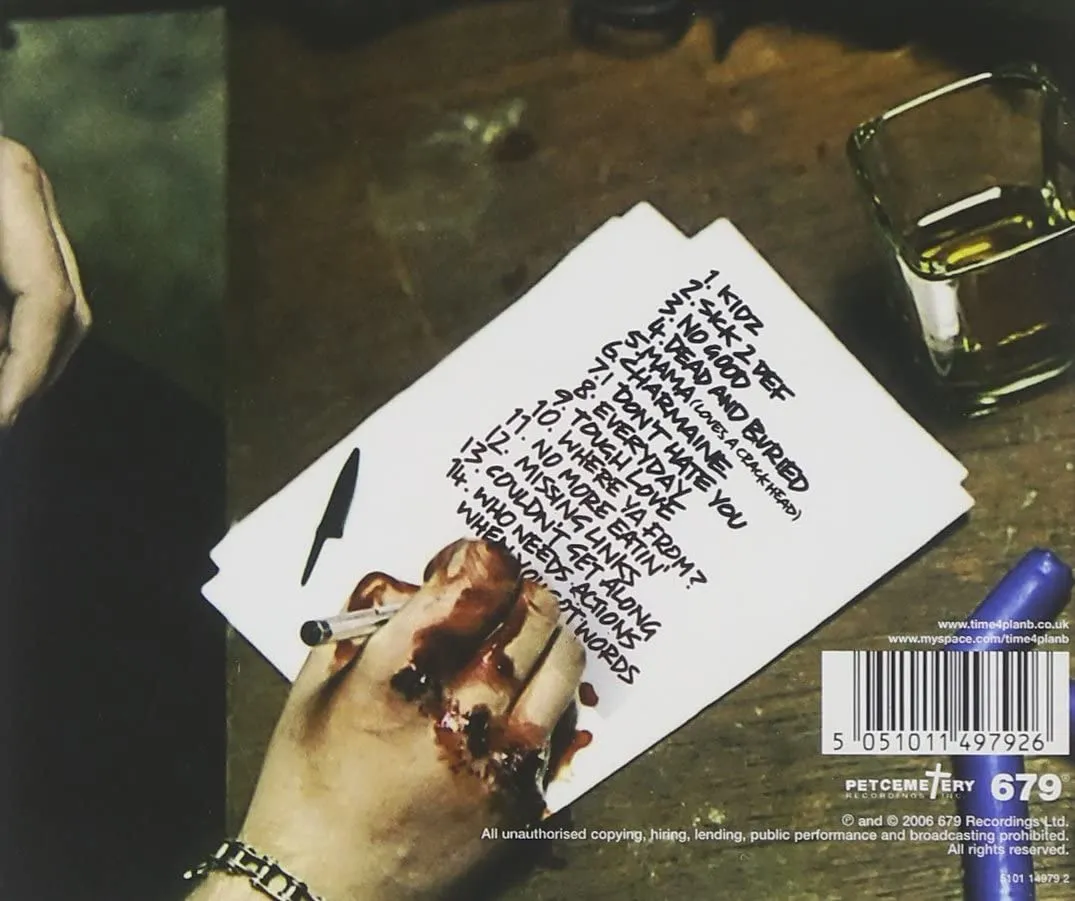 1. KIDZ
2. SICK 2 DEF
3. NO GOOD
4. DEAD AND BURIED
5. MAMA (LOVES A CRACKHEAD)
6. CHARMAINE
7. I DON'T HATE YOU
8. EVERYDAY
9. TOUGH LOVE
10. WHERE YA FROM?
11. NO MORE EATIN'
12. MISSING LINKS
13. COULDN'T GET ALONG
14. WHO NEEDS ACTIONS
WHEN YOU GOT WORDS
www.time4planb.co.uk
www.myspace.com/time4planb
5 051011 497926
PETCEMETERY
RECORDINGS INC
679
℗ and © 2006 679 Recordings Ltd.
All unauthorised copying, hiring, lending, public performance and broadcasting prohibited.
All rights reserved.
5101 14979 2